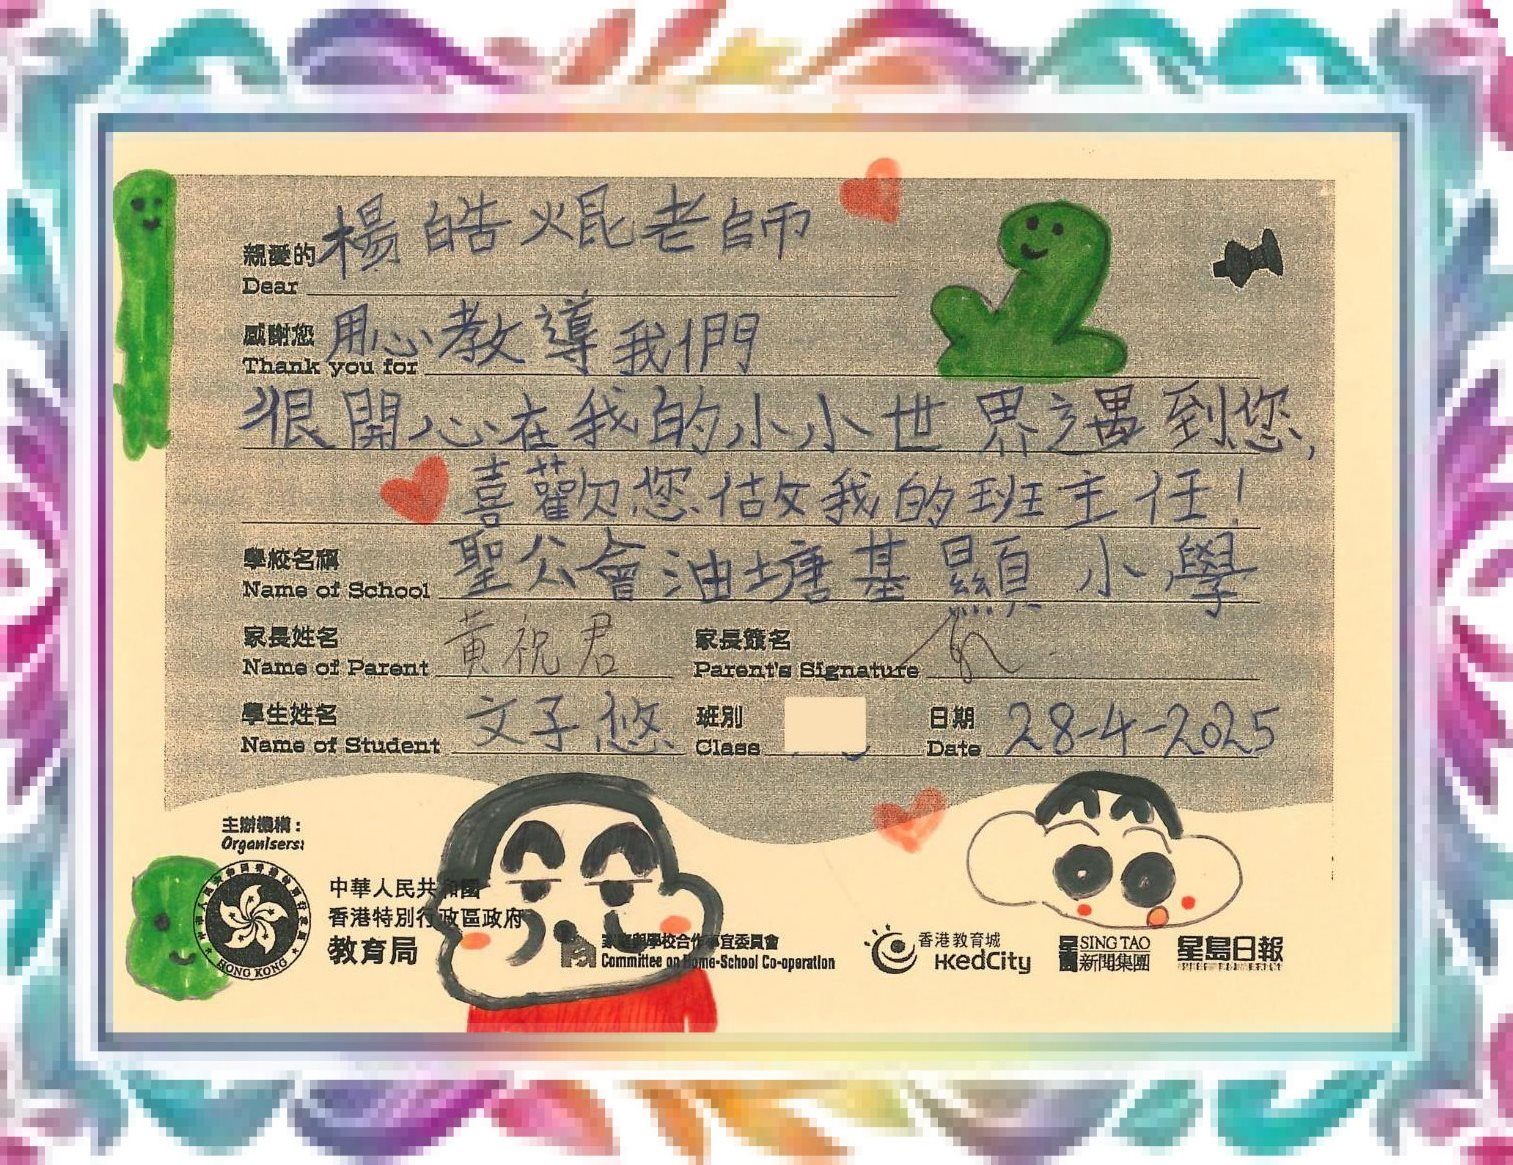 親愛的 楊皓焜老師
Dear
感謝您 用心教導我們
Thank you for
很開心在我的小小世界遇到您,
喜歡您做我的班主任!
學校名稱 聖公會油塘基顯小學
Name of School
家長姓名 黃祝君 家長簽名
Name of Parent Parent's Signature
學生姓名 文子悠 班別 日期 28-4-2025
Name of Student Class Date
主辦機構:
Organisers:
中華人民共和國
香港特別行政區政府
教育局
HONG KONG
家庭與學校合作事宜委員會
Committee on Home-School Co-operation
香港教育城
HKedCity
星島 SING TAO
新聞集團
星島日報